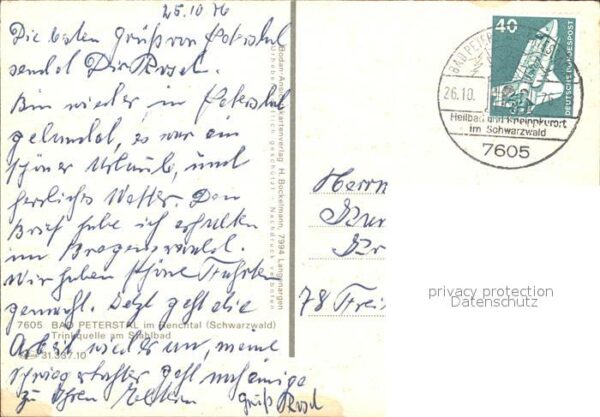 25.10.76
Die besten Grüße von Peterstal
sendet Dir Rosel.
Bin wieder in Peterstal
gelandet, es war ein
schöner Urlaub, und
herrliches Wetter. Den
Brief habe ich erhalten
im Bregenzwald.
Wir haben schöne Fahrten
gemacht. Jetzt geht die
Arbeit wieder an, meine
Schwiegertochter geht
zu Ihren Eltern
Gruß Rosel
7605 BAD PETERSTAL im Renchtal (Schwarzwald)
Trinkquelle am Stahlbad
31.357.10
Bodan-Ansichtskartenverlag H. Bockelmann, 7994 Langenargen
Urheberrechtlich geschützt - Nachdruck verboten
40
DEUTSCHE BUNDESPOST
BAD PETERSTAL
26.10.
Heilbad und Kneippkurort
im Schwarzwald
7605
Herrn
Kur
Kr
78 Frei
privacy protection
Datenschutz